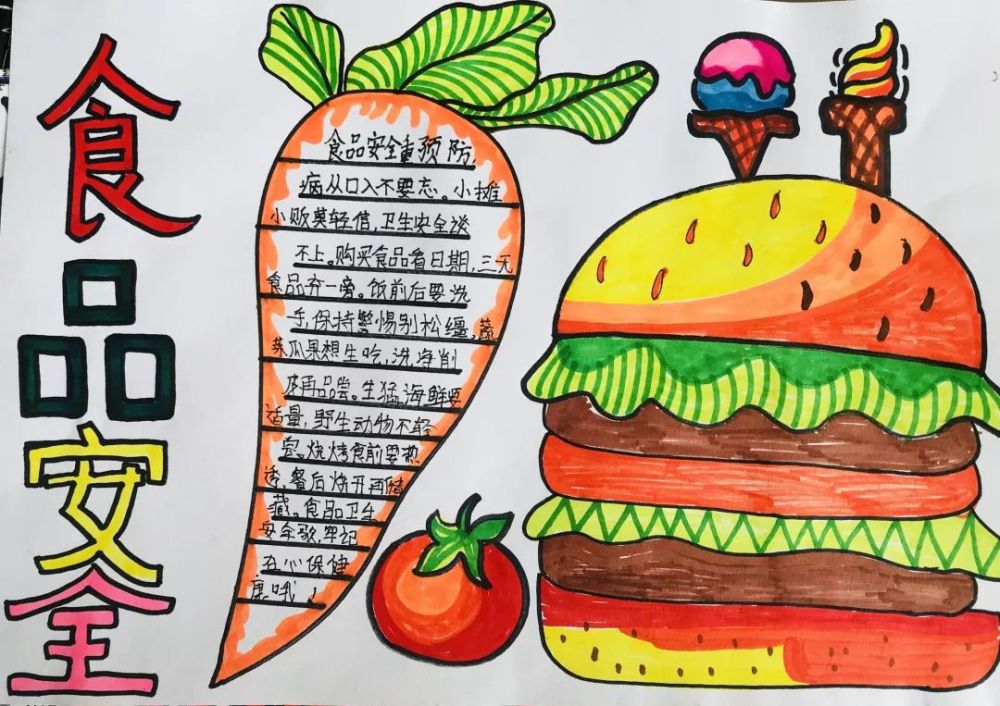 食品安全
食品安全重预防,
病从口入不要忘。小摊
小贩莫轻信,卫生安全谈
不上。购买食品看日期,三无
食品弃一旁。饭前后要洗
手,保持警惕别松缰。蔬
菜瓜果想生吃,洗净削
皮再品尝。生猛海鲜要
适量,野生动物不轻
尝。烧烤食前要热
透,餐后烧开再储
藏。食品卫生
安全歌,牢记
在心保健
康哦!